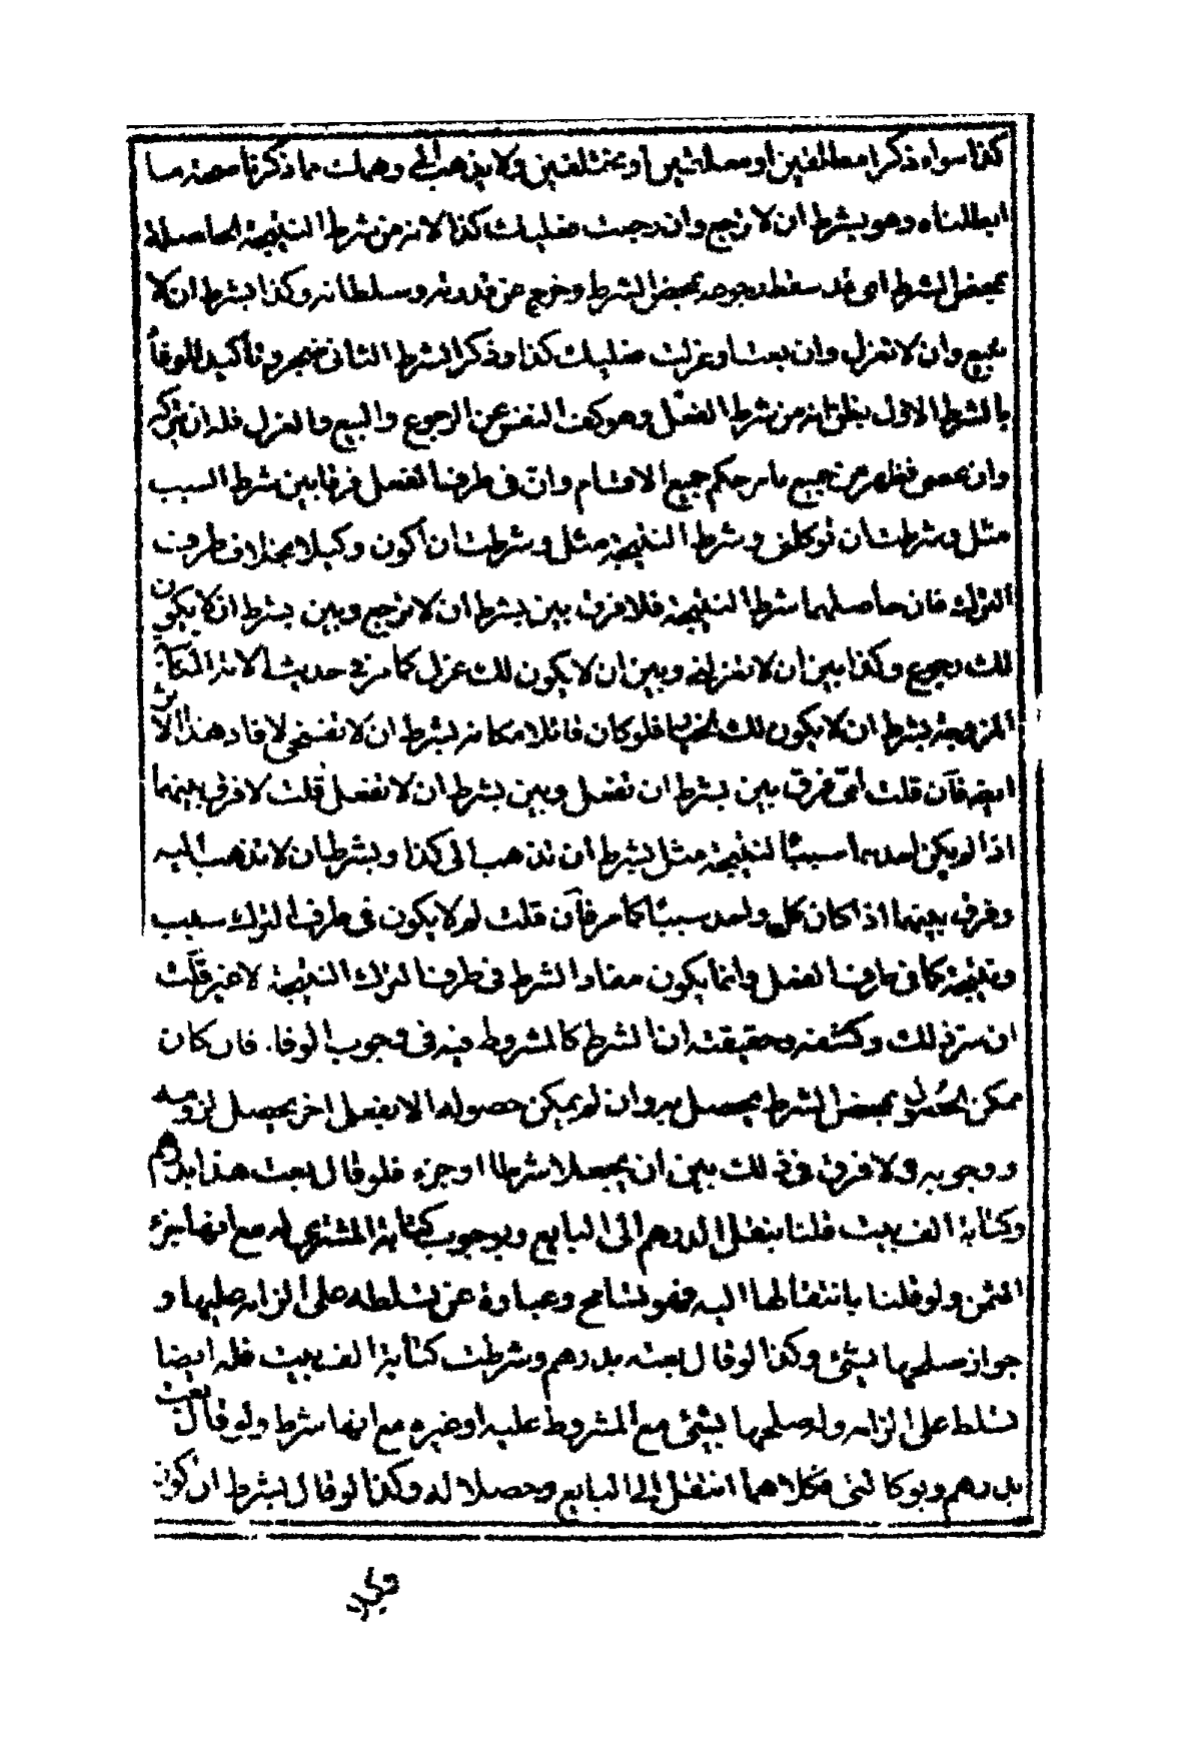 كذا سواء ذكرا مطلقين او معلقين او مختلفين ولا يذهب الى وهمك مما ذكرنا صحة ما
ابطلناه وهو بشرط ان لا ترجع وان رجعت فعليك كذا لانه من شرط النتيجة الحاصلة
بمحض الشرط اى قد سقط رجوعه بمحض الشرط وخرج عن قدرته وسلطانه وكذا بشرط ان لا
تبيع وان لا تعزل وان بعت او عزلت فعليك كذا وذكر الشرط الثانى وتأكيد للوفاء
بالشرط الاول بظن انه من شرط الفعل وهو كف النفس عن الرجوع والبيع والعزل فله ان يتركه
وان عصى فظهر من جميع ما مر حكم جميع الاقسام وان فى طرف الفعل فرقا بين شرط السبب
مثل وشرطت ان توكلنى وشرط النتيجة مثل وشرطت ان أكون وكيلا بخلاف طرف
الترك فان حاصلهما شرط النتيجة فلا فرق بين بشرط ان لا ترجع وبين بشرط ان لا يكون
لك رجوع وكذا بين ان لا تعزلنى وبين ان لا يكون لك عزل كما مر فى حديث
المزوجة بشرط ان لا يكون لك فلو كان قائلا مكانه بشرط ان لا تفسخى لافاد هذا الاثر
ايضا فان قلت اى فرق بين بشرط ان تفعل وبين بشرط ان لا تفعل قلت لا فرق بينهما
اذا لم يكن احدهما سببا لنتيجة مثل بشرط ان تذهب الى كذا وبشرط ان لا تذهب اليه
وفرق بينهما اذا كان كل واحد سببا كما مر فان قلت لم لا يكون فى طرف الترك سبب
ونتيجة كما فى طرف الفعل وانما يكون مفاد الشرط فى طرف الترك النتيجة لا غير قلت
ان سر ذلك وكشفه وحقيقته ان الشرط كالمشروط فيه فى وجوب الوفا. فان كان
ممكن الحصول بمحض الشرط يحصل به وان لم يمكن حصوله الا بفعل اخر يحصل لزومه
ووجوبه ولا فرق فى ذلك بين ان يجعلا شرطا او جزء فلو قال بعت هذا بدرهم
وكتابة الف بيت قلنا بنقل الدرهم الى البايع وبوجوب كتابة المشترى له مع انها جزء
الثمن ولو قلنا بانتقالها اليه فهو تسامح وعبارة عن تسلطه على الزامه عليها و
جواز صلحها بشئ وكذا لو قال بعته بدرهم وشرطت كتابة الف بيت فله ايضا
تسلط على الزامه وله صلحها بشئ مع المشروط عليه او غيره مع انها شرط ولو قال بعت
بدرهم وبوكالتى فكلاهما انتقل الى البايع وحصلا له وكذا لو قال بشرط ان كون